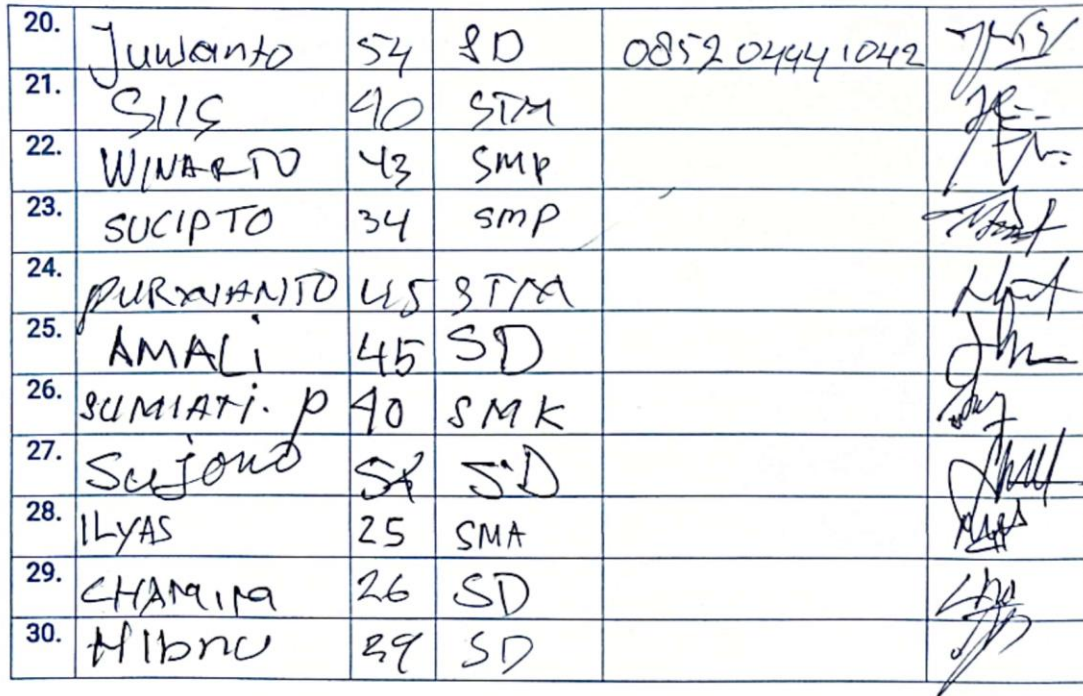 20. Juwanto 54 SD 085204441042
21. 40 STM
22. WINARTO 43 SMP
23. SUCIPTO 34 SMP
24. PURWANTO 45 STM
25. AMALi 45 SD
26. SUMIATi. P 40 SMK
27. Sujono SD
28. ILYAS 25 SMA
29. CHAMIM 26 SD
30. HIbnu 39 SD